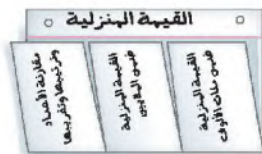 القيمة المنزلية
القيمة المنزلية
ضمن مئات الألوف
القيمة المنزلية
ضمن الملايين
مقارنة الأعداد
وترتيبها وتقريبها